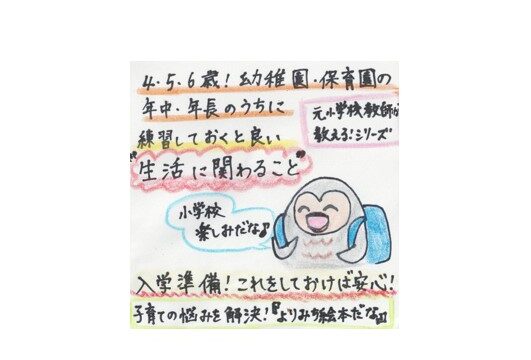 4・5・6歳！幼稚園・保育園の
年中・年長のうちに
元小学校教師が
教える！シリーズ
練習しておくと良い
"生活に関わること"
小学校
楽しみだな♪
入学準備！これをしておけば安心！
子育ての悩みを解決！『よりみち絵本だな』